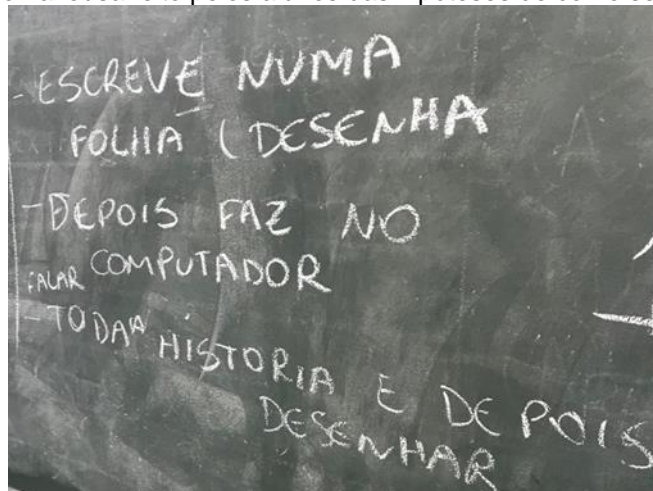 - ESCREVE NUMA
FOLHA ( DESENHA
- DEPOIS FAZ NO
COMPUTADOR
FALAR
- TODA A HISTORIA E DEPOIS
DESENHAR